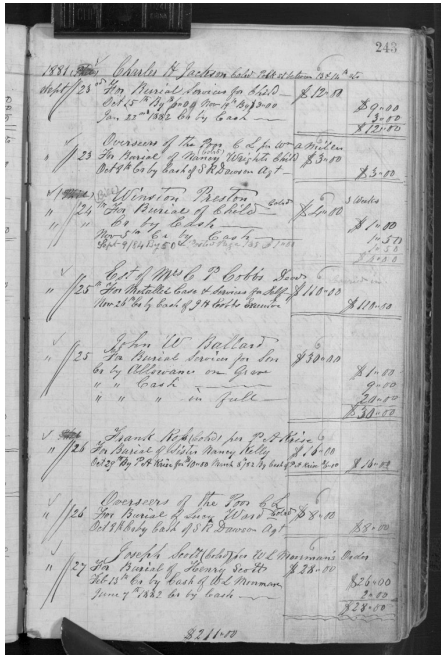 243
1881 Charles H Jackson Cold
Sept 23rd For Burial Services for Child $12=00
Jan 22nd 1882 By Cash $9=00
3=00
$12=00
Overseers of the Poor C L for Wm A
" 23 For Burial of Nancy Wrights Child $3=00
Oct 9th Cr by Cash of S R Dawson Agt $3=00
Winston Preston Cold 3 Weeks
" 24th For Burial of Child $4=00
" " Cr By Cash $1=00
Nov 5th Cr by Cash 1=50
Est of Mrs C P Cobbs Decd
" 25th For Metallic Case & Services for Self $110=00
Nov 26th Cr by Cash of J H Cobbs Executor $110=00
John W Ballard
" 25 For Burial Services for Son $30=00
Cr by Allowance on Grave $1=00
" " Cash 9=00
" " " in full 20=00
$30=00
Frank (Cold) per P A Krise
" 26 For Burial of Sister Nancy Kelly $16=00
$16=00
Overseers of the Poor C L
" 26 For Burial of Lucy Ward Cold $8=00
Oct 9th Cr by Cash of S R Dawson Agt $8=00
Joseph Scott (Cold) per W L Moormans Order
" 27 For Burial of Henry Scott $28=00
Feb 13th Cr by Cash of W L Moorman $26=00
June 7th 1882 Cr by Cash 2=00
$28=00
$211=00